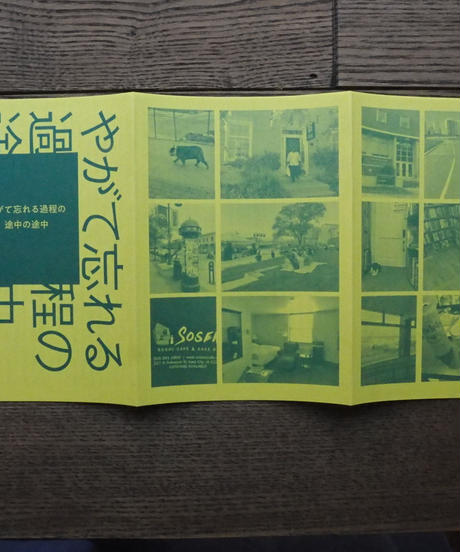 やがて忘れる
過程の
途中
がて忘れる過程の
途中の途中
CATERING AVAILABLE